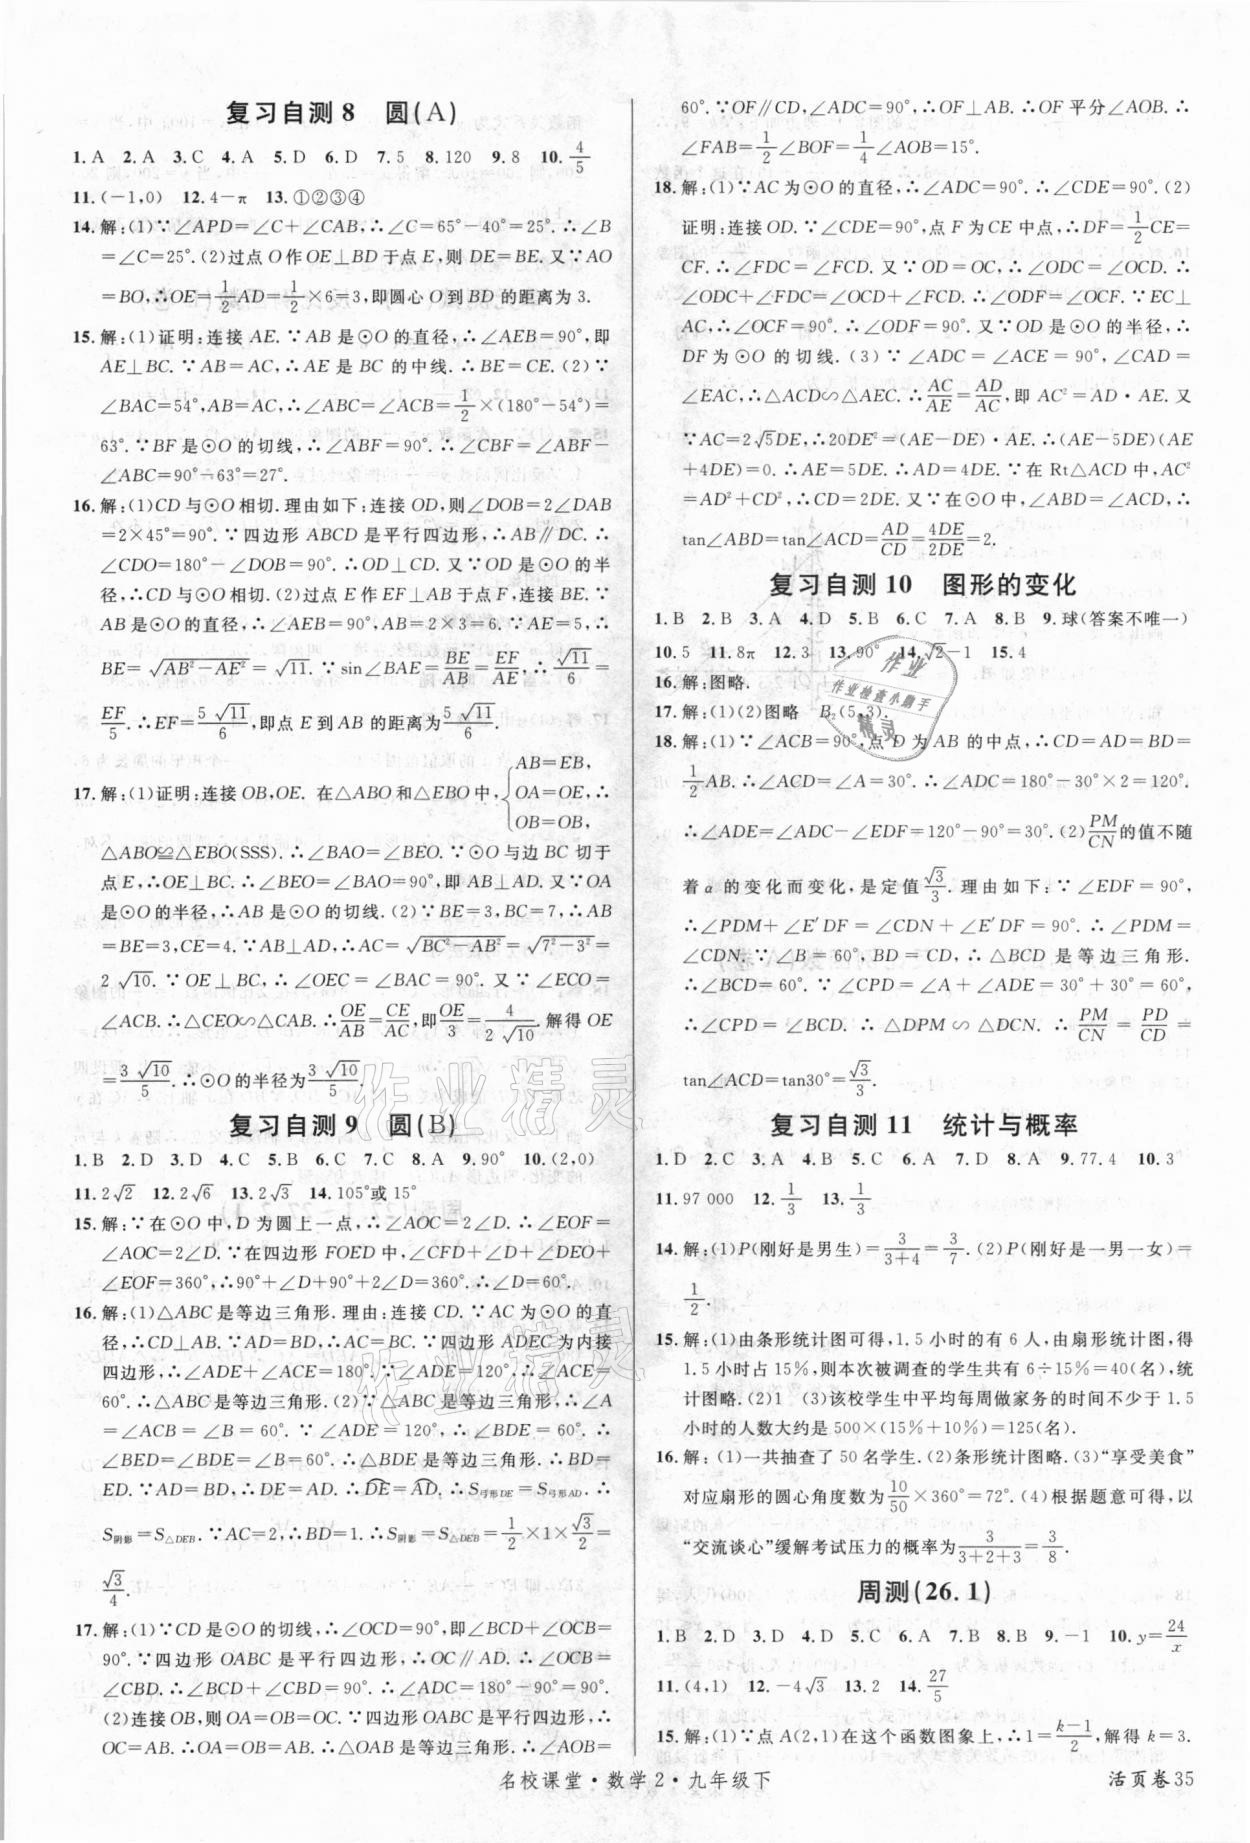 复习自测 8　圆(A)
1.A　2.A　3.C　4.A　5.D　6.D　7.5　8.120　9.8　10.4/5
11.(-1,0)　12.4-π　13.①②③④
14.解:(1)∵∠APD=∠C+∠CAB,∴∠C=65°-40°=25°.∴∠B
=∠C=25°.(2)过点 O 作 OE⊥BD 于点 E,则 DE=BE.又∵AO
=BO,∴OE=1/2AD=1/2×6=3,即圆心 O 到 BD 的距离为 3.
15.解:(1)证明:连接 AE.∵AB 是⊙O 的直径,∴∠AEB=90°,即
AE⊥BC.∵AB=AC,∴AE 是 BC 的中线.∴BE=CE.(2)∵
∠BAC=54°,AB=AC,∴∠ABC=∠ACB=1/2×(180°-54°)=
63°.∵BF 是⊙O 的切线,∴∠ABF=90°.∴∠CBF=∠ABF-
∠ABC=90°-63°=27°.
16.解:(1)CD 与⊙O 相切.理由如下:连接 OD,则∠DOB=2∠DAB
=2×45°=90°.∵四边形 ABCD 是平行四边形,∴AB∥DC.∴
∠CDO=180°-∠DOB=90°.∴OD⊥CD.又∵OD 是⊙O 的半
径,∴CD 与⊙O 相切.(2)过点 E 作 EF⊥AB 于点 F,连接 BE.∵
AB 是⊙O 的直径,∴∠AEB=90°,AB=2×3=6.∵AE=5,∴
BE=√(AB²-AE²)=√11.∵sin∠BAE=BE/AB=EF/AE,∴√11/6=
EF/5.∴EF=5√11/6,即点 E 到 AB 的距离为5√11/6.
17.解:(1)证明:连接 OB,OE.在△ABO 和△EBO 中,{AB=EB,
OA=OE,∴
OB=OB,
△ABO≌△EBO(SSS).∴∠BAO=∠BEO.∵⊙O 与边 BC 切于
点 E,∴OE⊥BC.∴∠BEO=∠BAO=90°,即 AB⊥AD.又∵OA
是⊙O 的半径,∴AB 是⊙O 的切线.(2)∵BE=3,BC=7,∴AB
=BE=3,CE=4.∵AB⊥AD,∴AC=√(BC²-AB²)=√(7²-3²)=
2√10.∵OE⊥BC,∴∠OEC=∠BAC=90°.又∵∠ECO=
∠ACB.∴△CEO∽△CAB.∴OE/AB=CE/AC,即OE/3=4/(2√10).解得 OE
=3√10/5.∴⊙O 的半径为3√10/5.
复习自测 9　圆(B)
1.B　2.D　3.D　4.C　5.B　6.C　7.C　8.A　9.90°　10.(2,0)
11.2√2　12.2√6　13.2√3　14.105°或 15°
15.解:∵在⊙O 中,D 为圆上一点,∴∠AOC=2∠D.∴∠EOF=
∠AOC=2∠D.∵在四边形 FOED 中,∠CFD+∠D+∠DEO+
∠EOF=360°,∴90°+∠D+90°+2∠D=360°.∴∠D=60°.
16.解:(1)△ABC 是等边三角形.理由:连接 CD.∵AC 为⊙O 的直
径,∴CD⊥AB.∵AD=BD,∴AC=BC.∵四边形 ADEC 为内接
四边形,∴∠ADE+∠ACE=180°.∵∠ADE=120°,∴∠ACE=
60°.∴△ABC 是等边三角形.(2)∵△ABC 是等边三角形,∴∠A
=∠ACB=∠B=60°.∵∠ADE=120°,∴∠BDE=60°.∴
∠BED=∠BDE=∠B=60°.∴△BDE 是等边三角形.∴BD=
ED.∵AD=BD,∴DE=AD.∴DE=AD.∴S弓形DE=S弓形AD.∴
S阴影=S△DEB.∵AC=2,∴BD=1.∴S阴影=S△DEB=1/2×1×√3/2=
√3/4.
17.解:(1)∵CD 是⊙O 的切线,∴∠OCD=90°,即∠BCD+∠OCB=
90°.∵四边形 OABC 是平行四边形,∴OC∥AD.∴∠OCB=
∠CBD.∴∠BCD+∠CBD=90°.∴∠ADC=180°-90°=90°.
(2)连接 OB,则 OA=OB=OC.∵四边形 OABC 是平行四边形,∴
OC=AB.∴OA=OB=AB.∴△OAB 是等边三角形.∴∠AOB=
60°.∵OF∥CD,∠ADC=90°,∴OF⊥AB.∴OF 平分∠AOB.∴
∠FAB=1/2∠BOF=1/4∠AOB=15°.
18.解:(1)∵AC 为⊙O 的直径,∴∠ADC=90°.∴∠CDE=90°.(2)
证明:连接 OD.∵∠CDE=90°,点 F 为 CE 中点,∴DF=1/2CE=
CF.∴∠FDC=∠FCD.又∵OD=OC,∴∠ODC=∠OCD.∴
∠ODC+∠FDC=∠OCD+∠FCD.∴∠ODF=∠OCF.∵EC⊥
AC,∴∠OCF=90°.∴∠ODF=90°.又∵OD 是⊙O 的半径,∴
DF 为⊙O 的切线.(3)∵∠ADC=∠ACE=90°,∠CAD=
∠EAC,∴△ACD∽△AEC.∴AC/AE=AD/AC,即 AC²=AD·AE.又
∵AC=2√5DE,∴20DE²=(AE-DE)·AE.∴(AE-5DE)(AE
+4DE)=0.∴AE=5DE.∴AD=4DE.∵在 Rt△ACD 中,AC²
=AD²+CD²,∴CD=2DE.又∵在⊙O 中,∠ABD=∠ACD,∴
tan∠ABD=tan∠ACD=AD/CD=4DE/2DE=2.
复习自测 10　图形的变化
1.B　2.B　3.A　4.D　5.B　6.C　7.A　8.B　9.球(答案不唯一)
10.5　11.8π　12.3　13.90°　14.√2-1　15.4
16.解:图略.
17.解:(1)(2)图略　B₂(5,3).
18.解:(1)∵∠ACB=90°,点 D 为 AB 的中点,∴CD=AD=BD=
1/2AB.∴∠ACD=∠A=30°.∴∠ADC=180°-30°×2=120°.
∴∠ADE=∠ADC-∠EDF=120°-90°=30°.(2)PM/CN的值不随
着 α 的变化而变化,是定值√3/3.理由如下:∵∠EDF=90°,
∴∠PDM+∠E′DF=∠CDN+∠E′DF=90°.∴∠PDM=
∠CDN.∵∠B=60°,BD=CD,∴△BCD 是等边三角形.
∴∠BCD=60°.∵∠CPD=∠A+∠ADE=30°+30°=60°,
∴∠CPD=∠BCD.∴△DPM∽△DCN.∴PM/CN=PD/CD=
tan∠ACD=tan30°=√3/3.
复习自测 11　统计与概率
1.D　2.C　3.A　4.B　5.C　6.A　7.D　8.A　9.77.4　10.3
11.97 000　12.1/3　13.1/3
14.解:(1)P(刚好是男生)=3/(3+4)=3/7.(2)P(刚好是一男一女)=
1/2.
15.解:(1)由条形统计图可得,1.5 小时的有 6 人,由扇形统计图,得
1.5 小时占 15%,则本次被调查的学生共有 6÷15%=40(名),统
计图略.(2)1　(3)该校学生中平均每周做家务的时间不少于 1.5
小时的人数大约是 500×(15%+10%)=125(名).
16.解:(1)一共抽查了 50 名学生.(2)条形统计图略.(3)“享受美食”
对应扇形的圆心角度数为10/50×360°=72°.(4)根据题意可得,以
“交流谈心”缓解考试压力的概率为3/(3+2+3)=3/8.
周测(26.1)
1.B　2.D　3.D　4.D　5.C　6.A　7.B　8.B　9.-1　10.y=24/x
11.(4,1)　12.-4√3　13.2　14.27/5
15.解:(1)∵点 A(2,1)在这个函数图象上,∴1=(k-1)/2,解得 k=3.
名校课堂·数学 2·九年级下
活页卷 35
作业
作业检查小助手
精灵
作业精灵
作业精灵